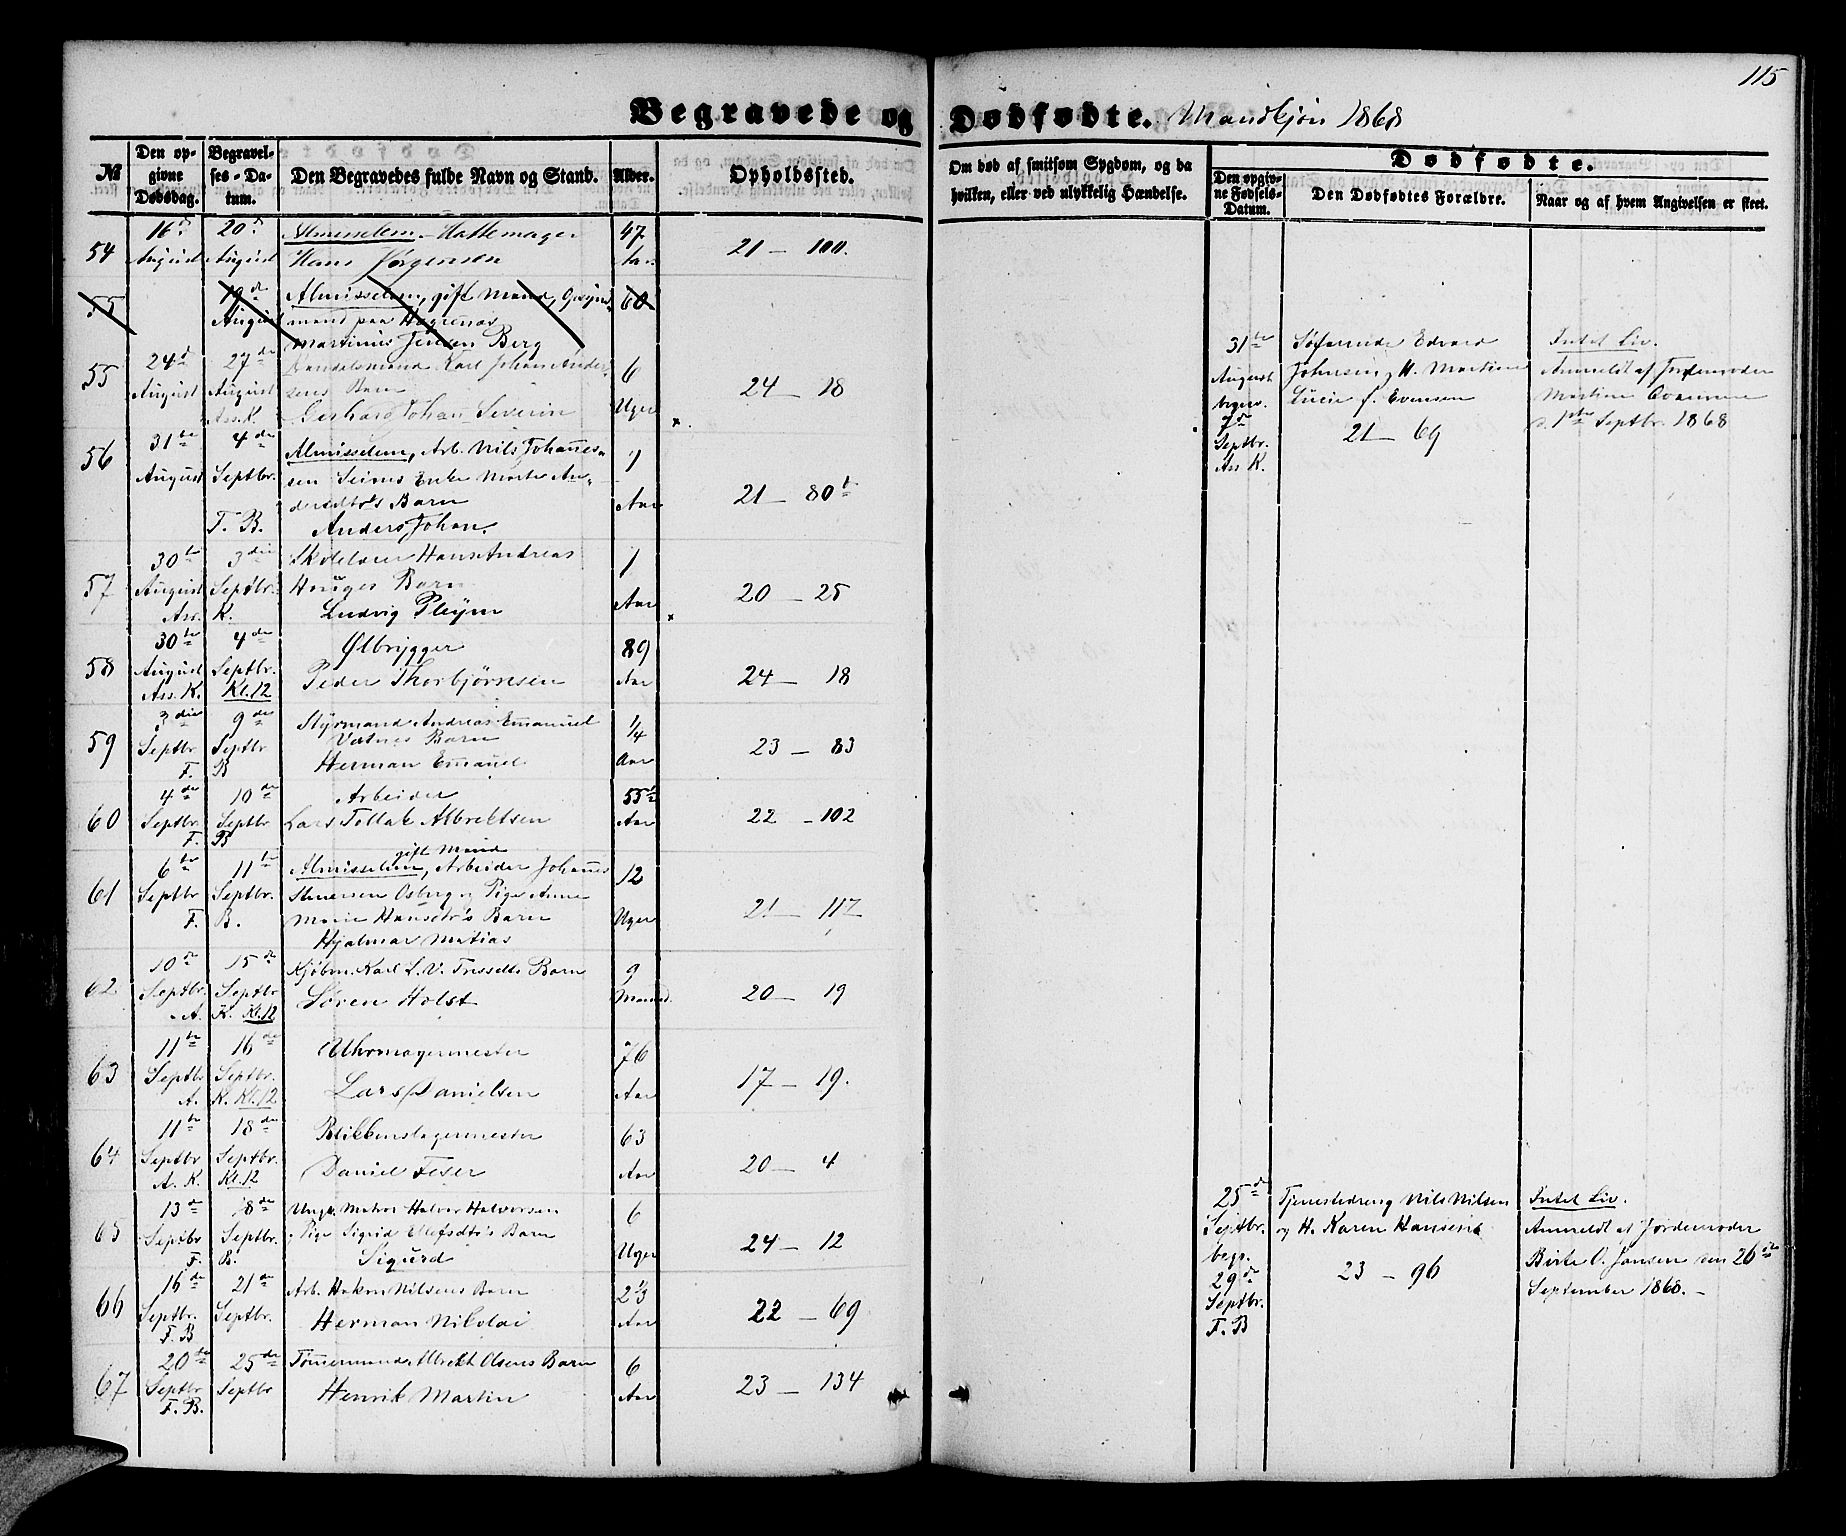 115
Begravede og Dødfødte. Mandkjøn 1868
№
Den opgivne Dødsdag.
Begravelses-Datum.
Den Begravedes fulde Navn og Stand.
Alder.
Opholdssted.
Om død af smitsom Sygdom, og da
hvilken, eller ved ulykkelig Hændelse.
Dødfødte.
Den opgivne Fødsels-Datum.
Den Dødfødtes Forældre.
Naar og af hvem Angivelsen er skeet.
54
16de August
20de August
Almisselem. Hattemager
Hans Jørgensen
47 Aar.
21 — 100.
55
19de August
Almisselem, gift Mand,
mand paa
Martinus Jensen Berg
60
55
24de August
27de August
Ass. K.
Handelsmand Karl Johan Andersens Barn
Gerhard Johan Severin
6 Uger
24 — 18
56
31te August
4de Septbr.
F. B.
Almisselem, Arb. Nils Johannessen
Enke
Barn
Anders Johan.
1 Aar
21 — 80
57
30te August
3die Septbr.
Ass. K.
Skolelærer Hans Andreas
Hauges Barn
Ludvig Pleym
1 Aar
20 — 25
58
30te August
4de Septbr.
Ass. K. Kl. 12
Ølbrygger
Peder Thorbjørnsen
89 Aar
24 — 18
59
3die Septbr
9de Septbr
F. B
Styrmand Andreas Emanuel
Vatnes Barn
Herman Emanuel
1/4 Aar
23 — 83
60
4de Septbr
10de Septbr
F. B
Arbeider
Lars Tollak Albrektsen
55 Aar
22 — 102
61
6te Septbr
11te Septbr.
F. B.
gift Mand
Almisselem, Arbeider Johannes
Osberg og Pige Anne
Marie Hansdtr's Barn
Hjalmar Matias
12 Uger
21 — 117
62
10de Septbr.
15de Septbr
A. K. Kl. 12
Kjøbm. Karl L. V. Barn
Søren Holst
9 Maaned.
20 — 19
63
11te Septbr
16de Septbr.
A. K. Kl. 12
Uhrmagermester
Lars Danielsen
76 Aar
17 — 19.
64
11te Septbr
18de Septbr.
A. K. Kl. 12
Blikkenslagermester
Daniel Feser
63 Aar
20 — 4
65
13de Septbr
18de Septbr.
F. B.
Ungk. Matros Halvor Halvorsen
og Pige Sigrid Ellefsdtr's Barn
Sigurd
6 Uger
24 — 12
66
16de Septbr.
21de Septbr.
F. B
Arb. Hakon Nilsens Barn
Herman Nikolai
2 1/3 Aar
22 — 69
67
20de Septbr
25de Septbr
F. B.
Tømmermand Albrekt Olsens Barn
Henrik Martin
6 Aar
23 — 134
31te August
begr.
7de Septbr.
Ass. K.
Søfarende Edvard
Johnsen og H. Martine
Lucie f. Evensen
21 — 69
Intet Liv.
Anmeldt af Jordemoder
Martine
1ste Septbr. 1868
25de Septbr.
begr.
29de Septbr.
F. B
Tjenestedreng Nils Nilsen
og H. Karen Hansen
23 — 96
Intet Liv.
Anmeldt af Jordemoder
Birte O. Jansen den 26de
September 1868. —